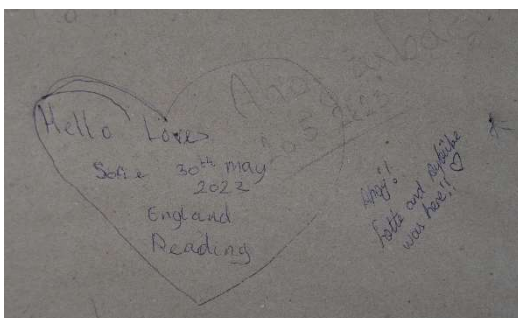 Hello Loves
Sofie 30th may
2022
England
Reading
Ahoj!
Lotte and
was here!! ♡